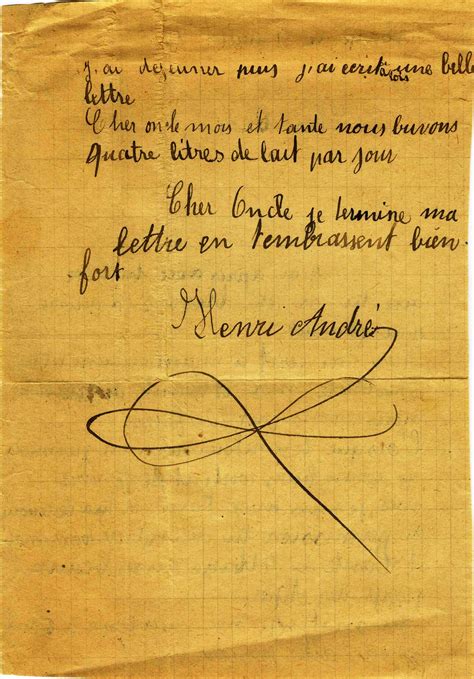 j'ai dejeuner puis j'ai ecrit a vous une belle
lettre
Cher oncle mois et tante nous buvons
quatre litres de lait par jour
Cher Oncle je termine ma
lettre en t'embrassent bien
fort
Henri André